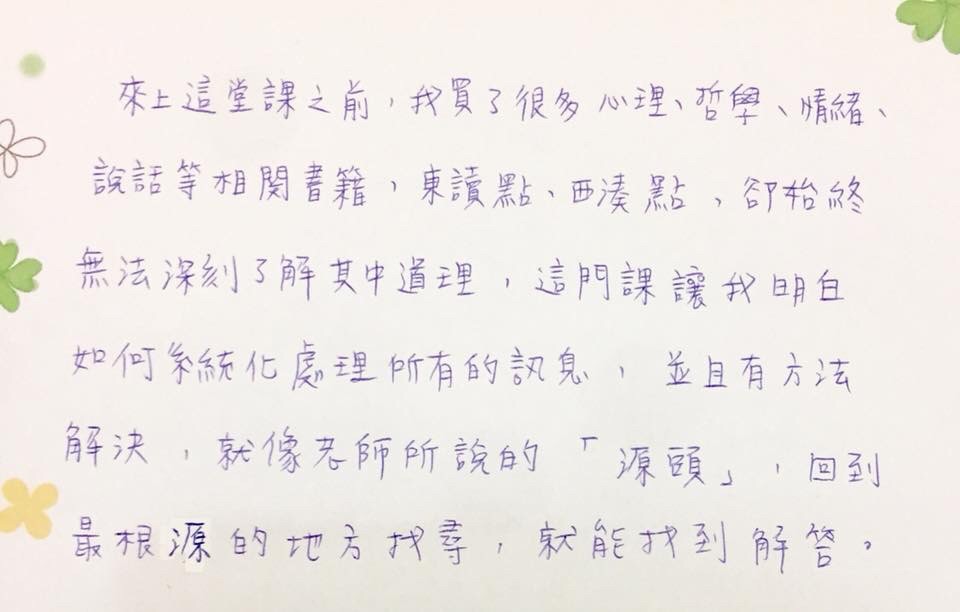 來上這堂課之前，我買了很多心理、哲學、情緒、
說話等相関書籍，東讀點、西湊點，卻始終
無法深刻了解其中道理，這門課讓我明白
如何系統化處理所有的訊息，並且有方法
解決，就像老師所說的「源頭」，回到
最根源的地方找尋，就能找到解答。